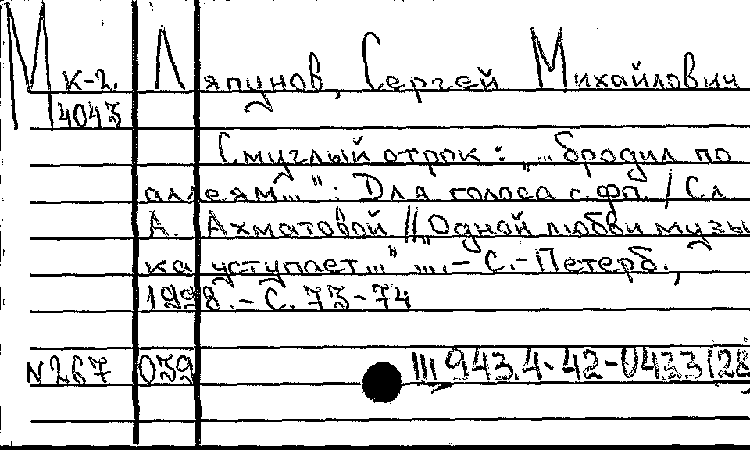 М к-2. Ляпунов, Сергей Михайлович
4043
Смуглый отрок: "... бродил по
аллеям...": Для голоса с фп. / Сл.
А. Ахматовой // "Одной любви музы
ка уступает..." ... - С.-Петерб.,
1998. - С. 73-74
N267 039 943.4-42-0433(28